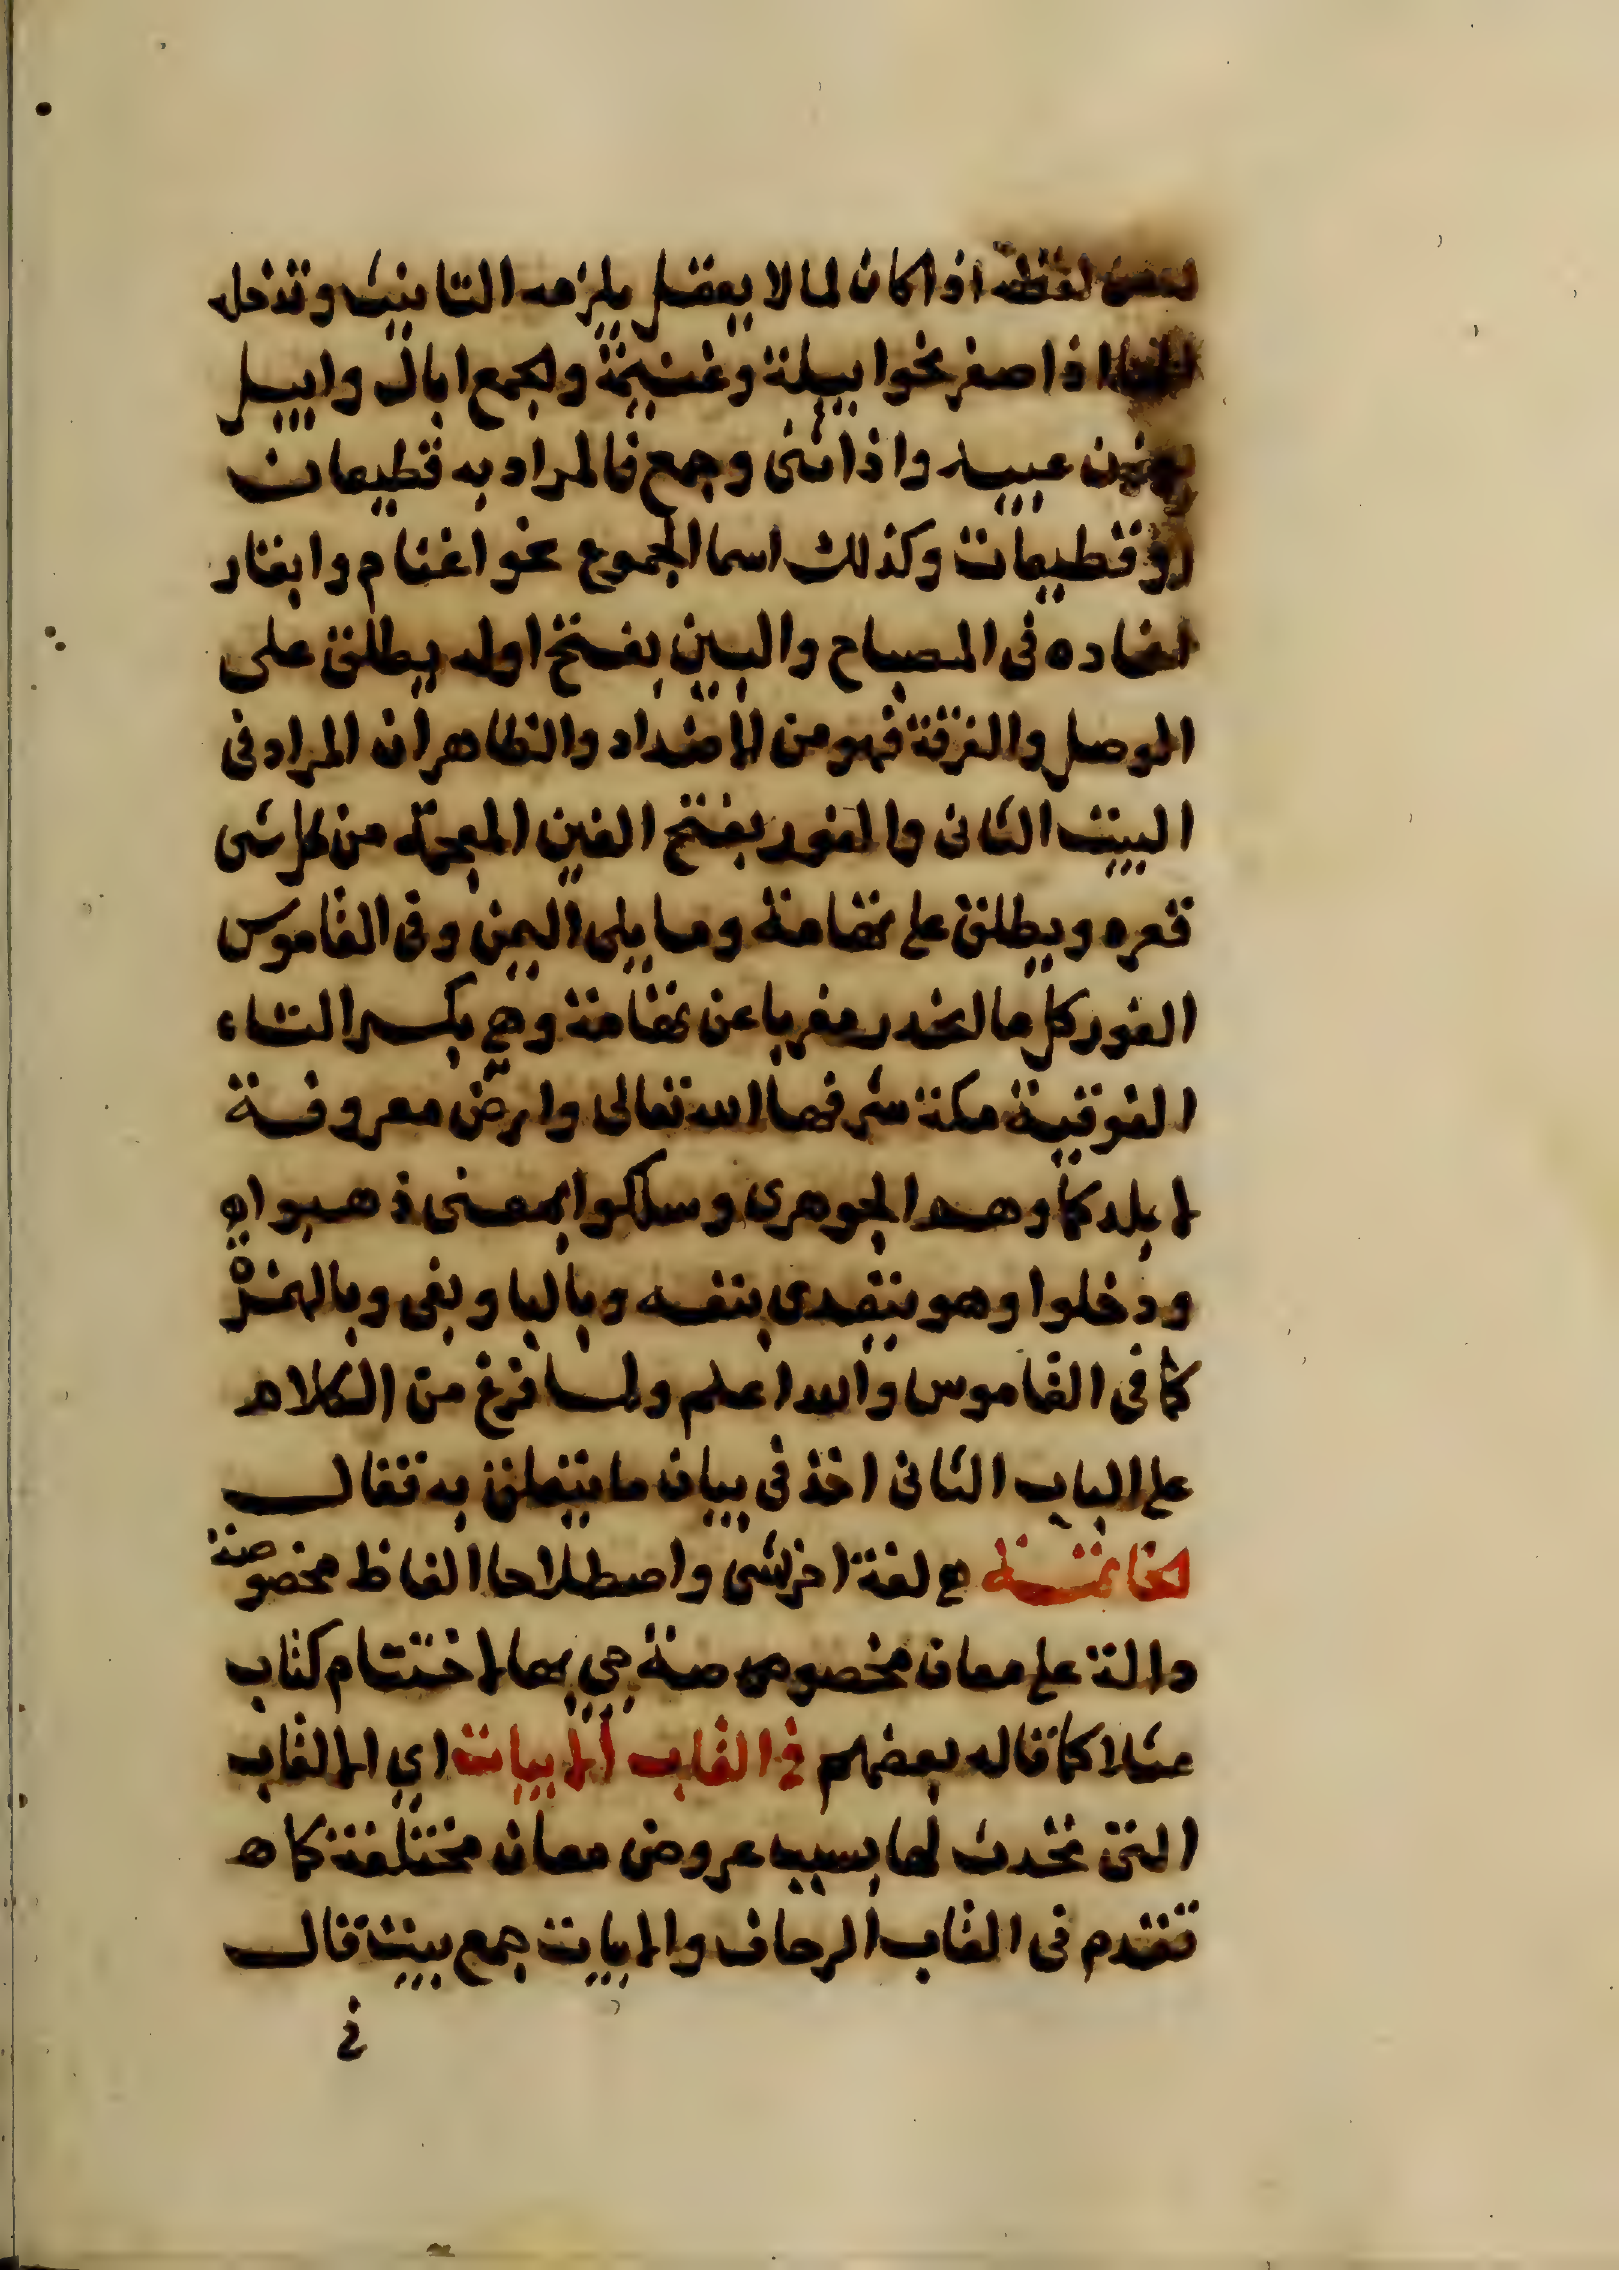 لفظه اذا كان لما لا يعقل يلزمه التانيث وتدخل
اذا صغر نحو ابيلة وغنيمة والجمع ابال وابيل
بوزن عبيد واذا ثنى وجمع فالمراد به قطيعان
او قطيعات وكذلك اسما الجموع نحو اغنام وابقار
افاده فى المصباح والبين بفتح اوله يطلق على
الوصل والفرقة فهو من الاضداد والظاهر ان المراد فى
البيت الثانى والغور بفتح الغين المعجمة من كل شى
قعره ويطلق على تهامة وما يلى اليمن وفى القاموس
الغور كل ما انحدر مغربا عن تهامة وهي بكسر التاء
الفوقية مكة شرفها الله تعالى وارض معروفة
لا بلد كما وهم الجوهرى وسلكوا بمعنى ذهبوا به
ودخلوا وهو يتعدى بنفسه وبالبا وبفى وبالهمزة
كما فى القاموس والله اعلم ولما فرغ من الكلام
على الباب الثانى اخذ فى بيان ما يتعلق به فقال
الخاتمة هي لغة اخر شى واصطلاحا الفاظ مخصوصة
دالة على معان مخصوصة جي بها لاختتام كتاب
مثلا كما قاله بعضهم فى القاب الابيات اي الالقاب
التى تحدث لها بسبب عروض معان مختلفة كما ه
تقدم فى القاب الزحاف والابيات جمع بيت قال
فى